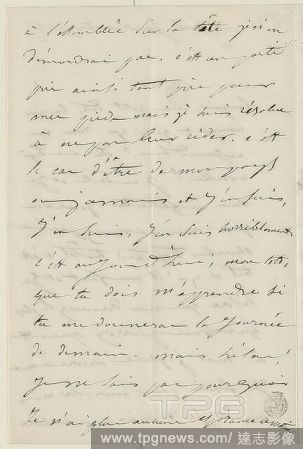 à l'assemblée sur la tête je n'en
démordrai pas. c'est un parti
pris ainsi tout pire pour
mes pieds mais je suis résolue
à ne pas leur céder. c'est
le cas d'être de mon pays
ou jamais et j'en suis,
j'en suis, j'en suis horriblement
c'est aujourd'hui, mon toto,
que tu dois m'apprendre si
tu me donneras la journée
de demain. mais hélas!
je ne sais pas pourquoi
je n'ai plus aucune
TPG
www.tpgnews.com/達志影像